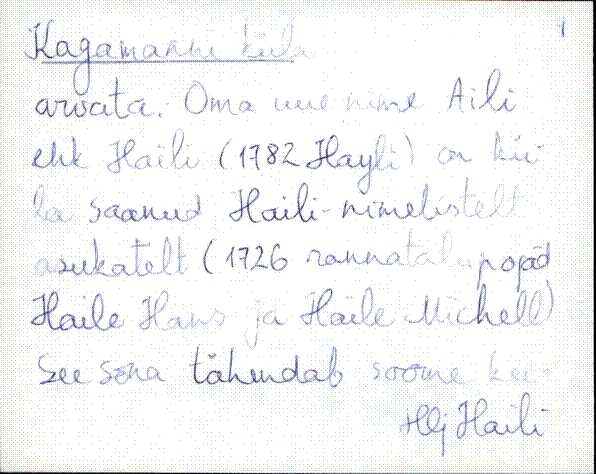 Kagamanni küla 1
arvata. Oma uue nime Aili
ehk Haili (1782 Hayli) on kü-
la saanud Haili-nimelistelt
asukatelt (1726 rannatalupojad
Haile Hans ja Haile Michell)
See sõna tähendab soome kee-
Hlj Haili